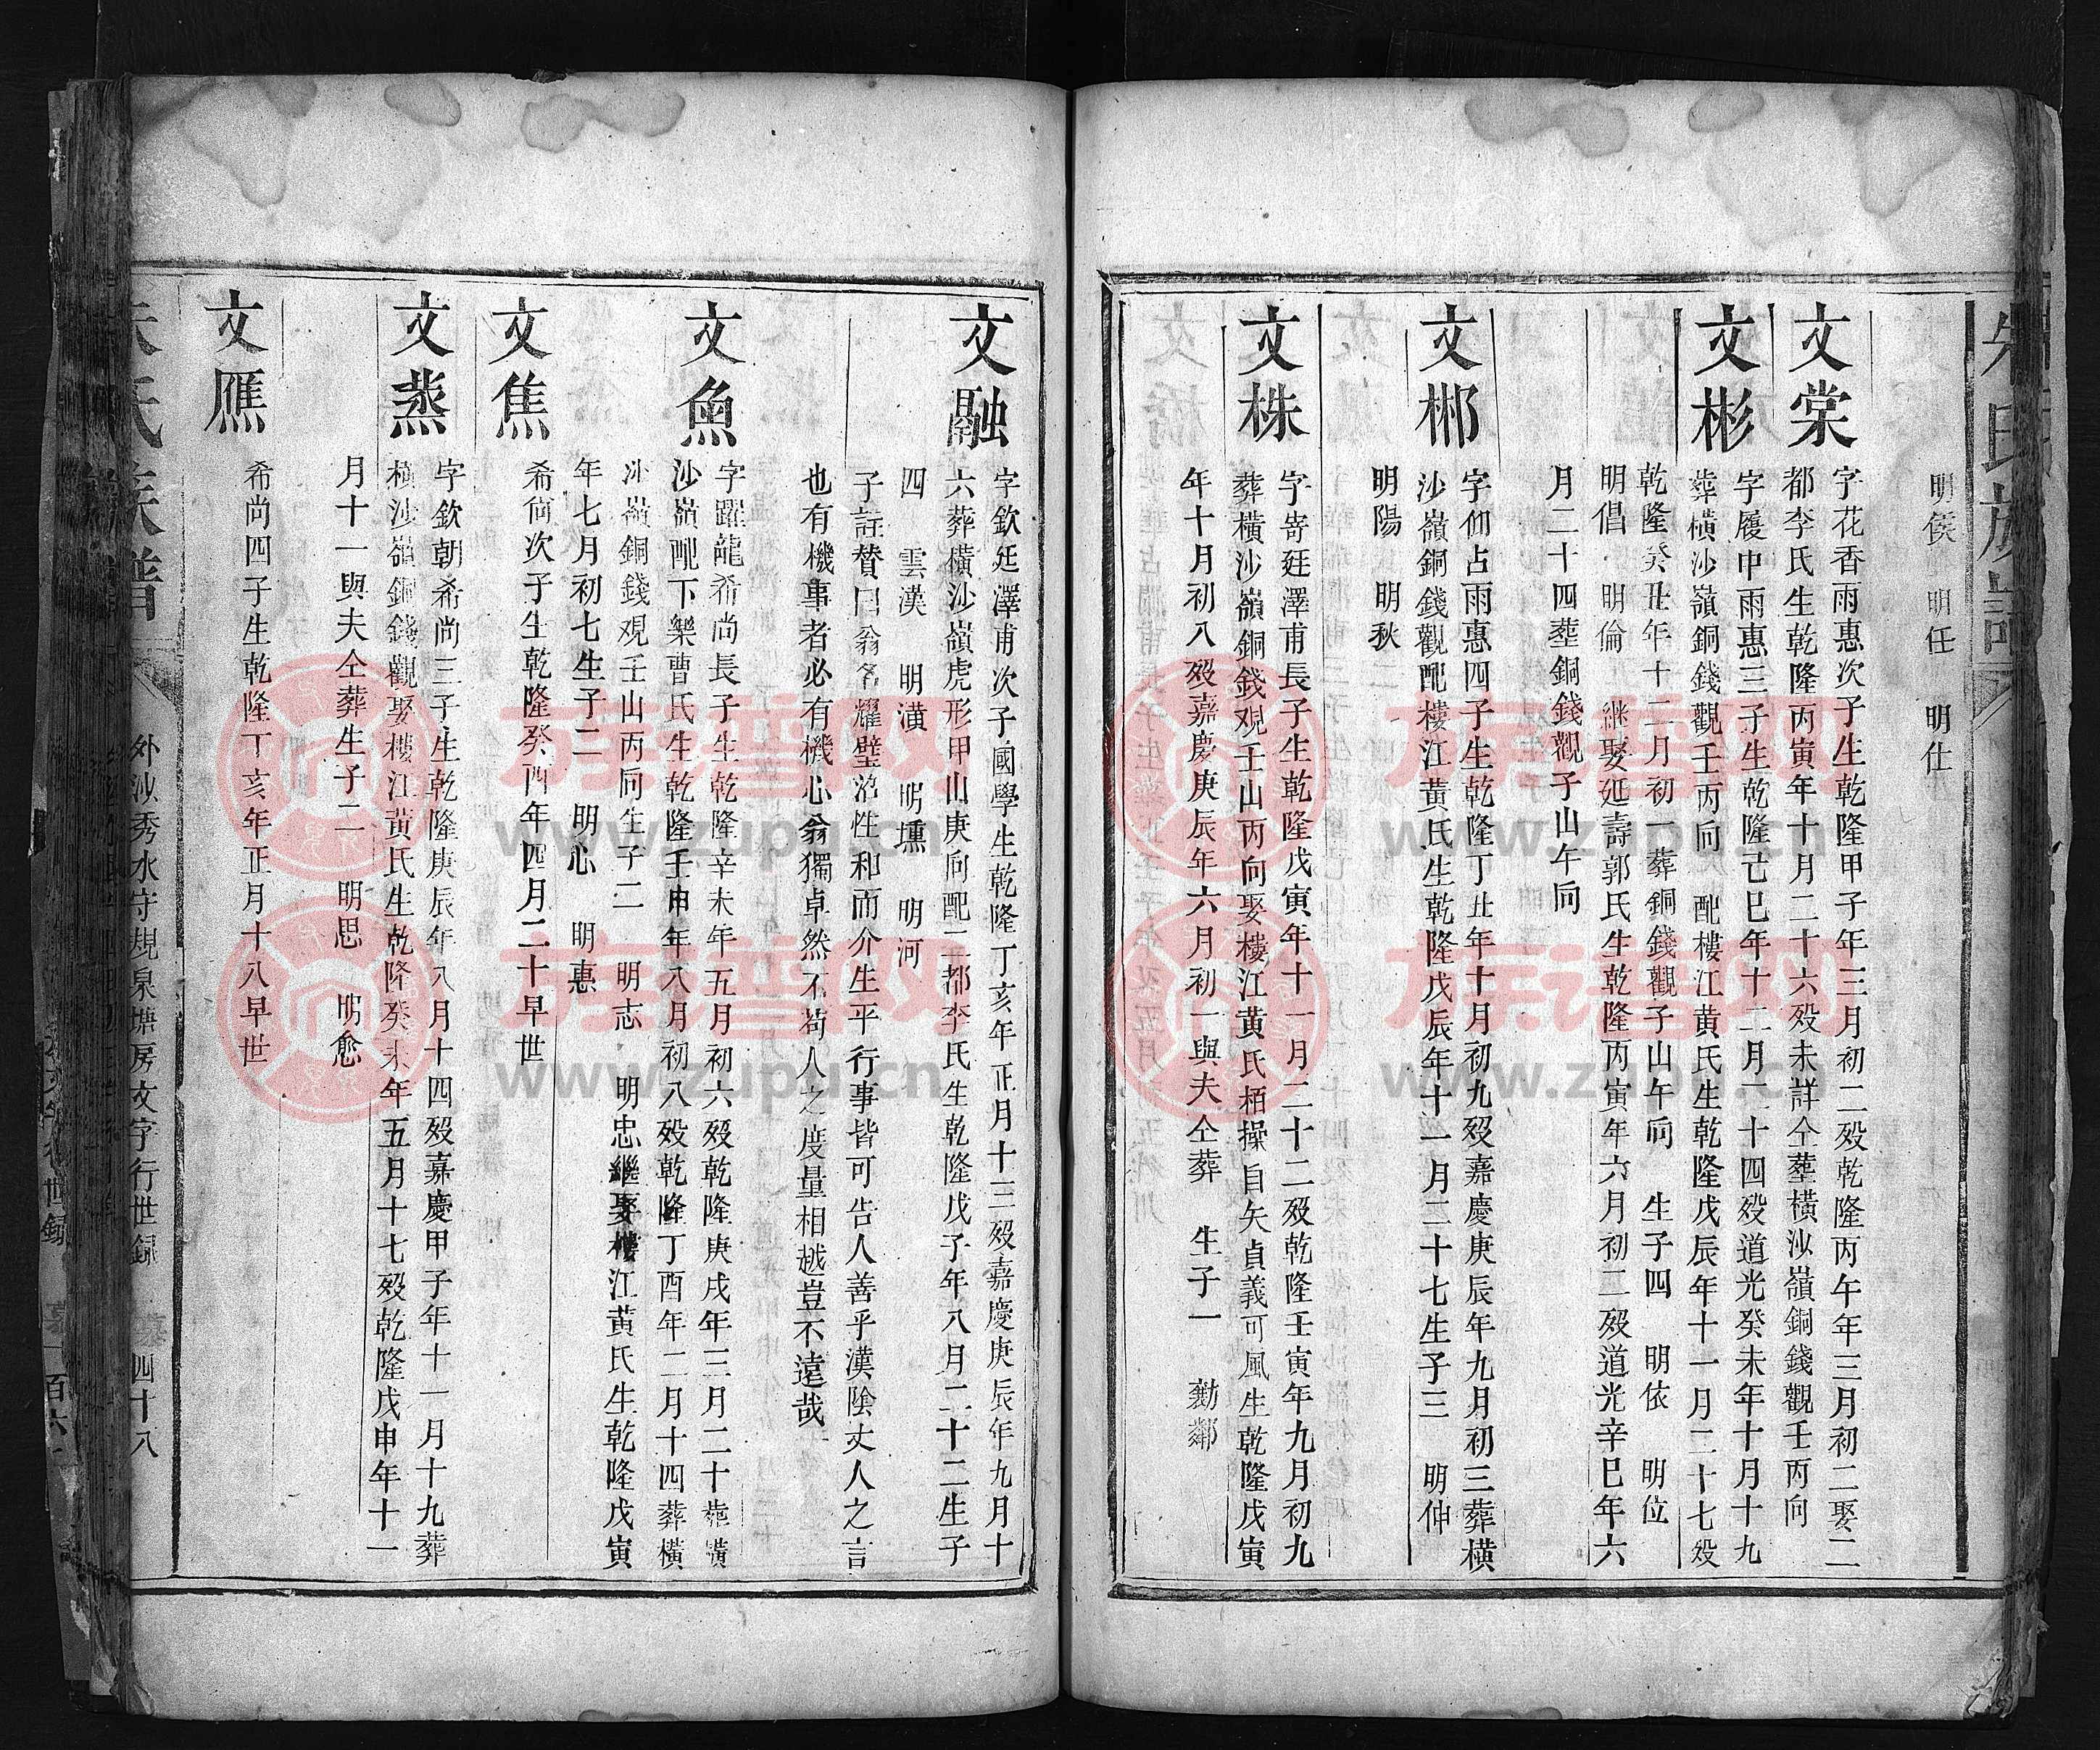 朱氏族譜
明侯　明任　明仕
文棠
字花香雨惠次子生乾隆甲子年三月初二殁乾隆丙午年三月初二娶二
都李氏生乾隆丙寅年十月二十六殁未詳仝塟橫沙嶺銅錢觀壬丙向
文彬
字履中雨惠三子生乾隆己巳年十二月二十四殁道光癸未年十月十九
葬橫沙嶺銅錢觀壬丙向　配樓江黄氏生乾隆戊辰年十一月二十七殁
乾隆癸丑年十二月初一葬銅錢觀子山午向　生子四　明依　明位
明倡　明倫　継娶延壽郭氏生乾隆丙寅年六月初二殁道光辛巳年六
月二十四塟銅錢觀子山午向
文郴
字仰占雨惠四子生乾隆丁丑年十月初九殁嘉慶庚辰年九月初三葬橫
沙嶺銅錢觀配樓江黄氏生乾隆戊辰年十一月二十七生子三　明伸
明陽　明秋
文株
字嵜廷澤甫長子生乾隆戊寅年十一月二十二殁乾隆壬寅年九月初九
葬橫沙嶺銅錢观壬山丙向娶樓江黄氏栢操自矢貞義可風生乾隆戊寅
年十月初八殁嘉慶庚辰年六月初一與夫仝葬　生子一　勷鄰
文融
字欽廷澤甫次子國學生乾隆丁亥年正月十三殁嘉慶庚辰年九月十
六葬橫沙嶺虎形甲山庚向配二都李氏生乾隆戊子年八月二十二生子
四　雲漢　明潢　明壎　明河
子註賛曰翁名耀璧浴性和而介生平行事皆可告人善乎漢陰丈人之言
也有機事者必有機心翁獨卓然不苟人之度量相越豈不遠哉
文魚
字躍龍希尚長子生乾隆辛未年五月初六殁乾隆庚戌年三月二十葬橫
沙嶺配下樂曹氏生乾隆壬申年八月初八殁乾隆丁酉年二月十四葬橫
沙嶺銅錢观壬山丙向生子二　明志　明忠継娶樓江黄氏生乾隆戊寅
年七月初七生子二　明心　明惠
文焦
希尚次子生乾隆癸酉年四月二十早世
文烝
字欽朝希尚三子生乾隆庚辰年八月十四殁嘉慶甲子年十一月十九葬
橫沙嶺銅錢觀娶樓江黄氏生乾隆癸未年五月十七殁乾隆戊申年十一
月十一與夫仝葬生子二　明思　明愈
文鴈
希尚四子生乾隆丁亥年正月十八早世
朱氏族譜
外沙秀水守規泉塘房文字行世録　四十八
族谱网
www.zupu.cn
族谱网
www.zupu.cn
族谱网
www.zupu.cn
族谱网
www.zupu.cn